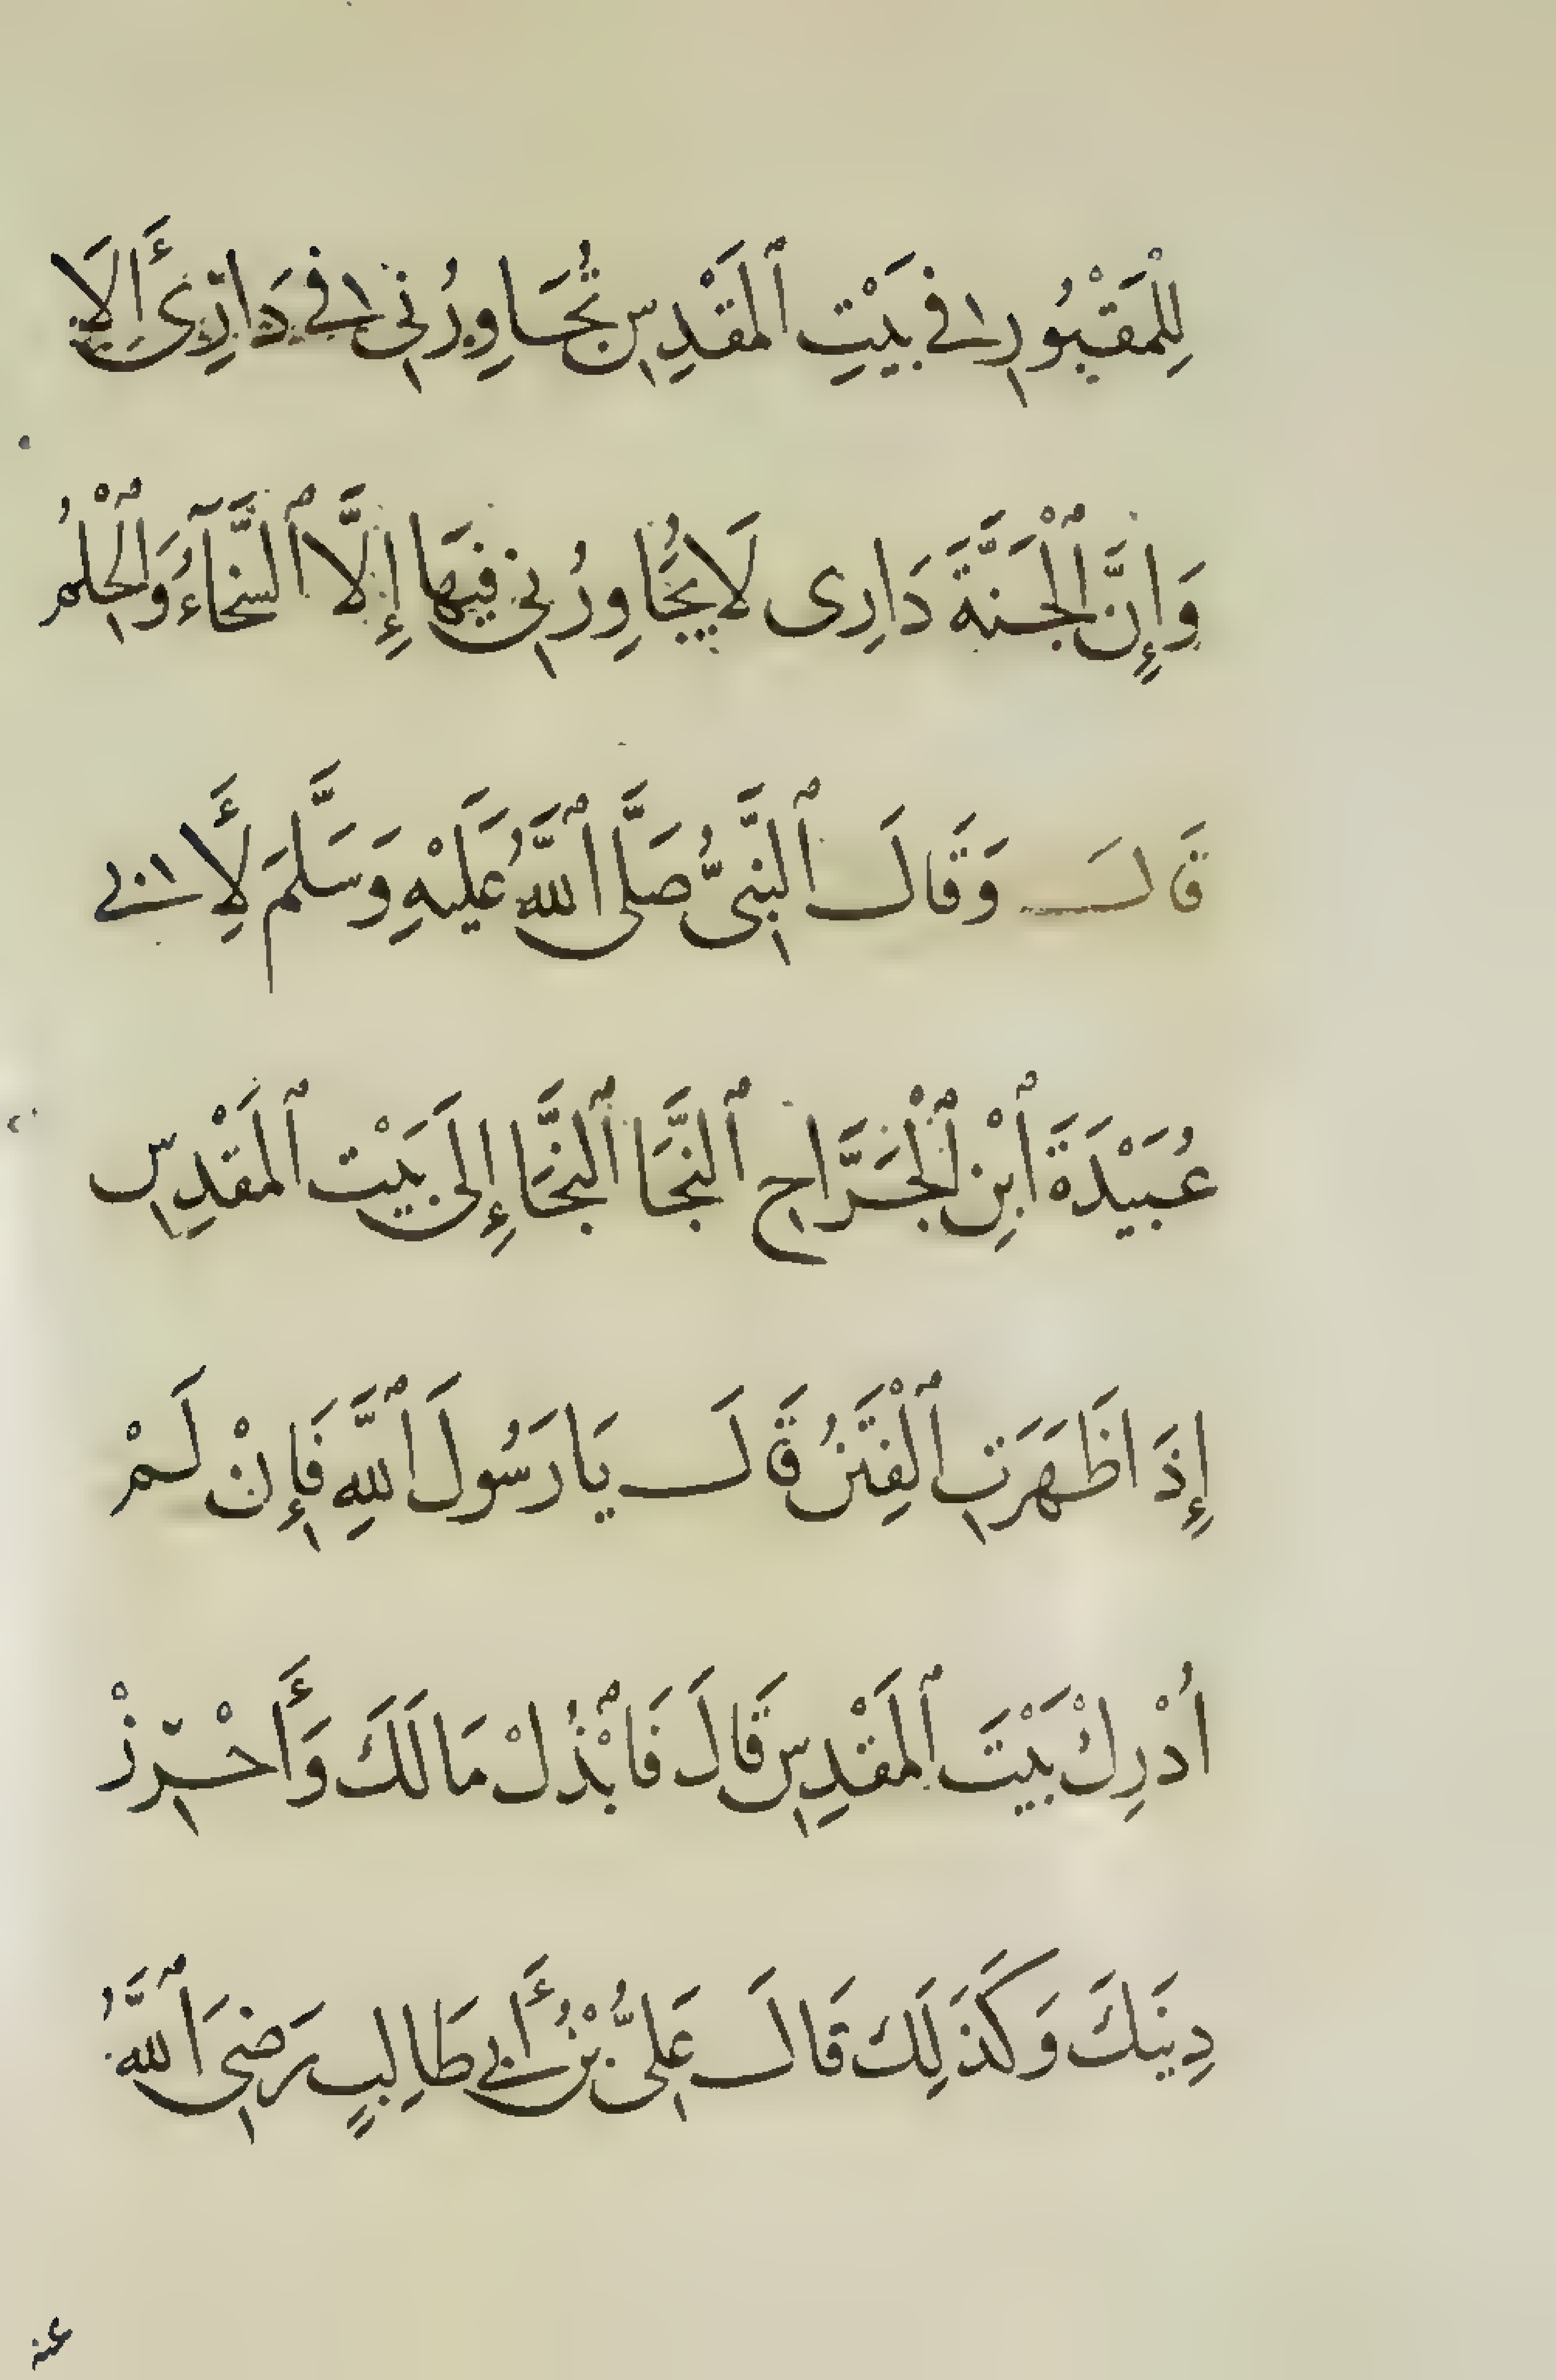 لِلْمَقْبُورِ فِي بَيْتِ ٱلْمَقْدِسِ تُجَاوِرُنِي فِي دَارِي أَلَا
وَإِنَّ ٱلْجَنَّةَ دَارِى لَا يُجَاوِرُنِي فِيهَا إِلَّا ٱلسَّخَآءُ وَٱلْحِلْمُ
قَالَ وَقَالَ ٱلنَّبِىُّ صَلَّى ٱللَّهُ عَلَيْهِ وَسَلَّمَ لِأَبِي
عُبَيْدَةَ ٱبْنِ ٱلْجَرَّاحِ ٱلنَّجَا ٱلنَّجَا إِلَى بَيْتِ ٱلْمَقْدِسِ
إِذَا ظَهَرَتِ ٱلْفِتَنُ قَالَ يَا رَسُولَ ٱللَّهِ فَإِنْ لَمْ
أُدْرِكْ بَيْتَ ٱلْمَقْدِسِ قَالَ فَٱبْذُلْ مَالَكَ وَأَحْرِزْ
دِينَكَ وَكَذَلِكَ قَالَ عَلِىُّ بْنُ أَبِي طَالِبٍ رَضِىَ ٱللَّهُ
عنه